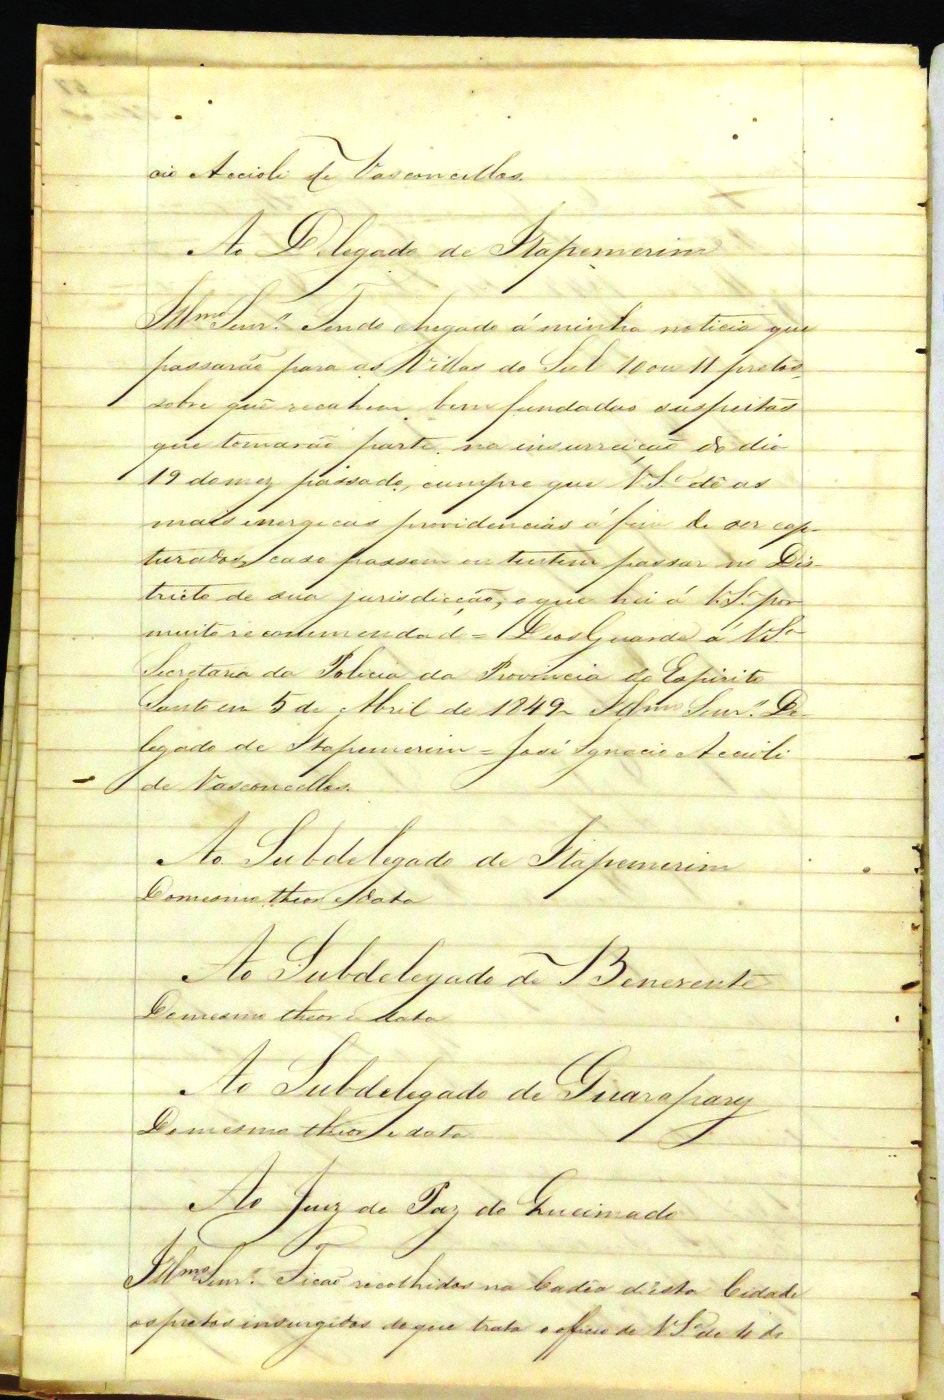 cio Accioli de Vasconcellos.
Ao Delegado de Itapemerim
Illmo Senr. Tendo chegado á minha noticia que
passarão para as Villas do Sul 10 ou 11 pretos,
sobre que recahem bem fundadas suspeitas
que tomarão parte na insurreição do dia
19 do mez passado, cumpre que V.S.ª dê as
mais energicas providencias á fim de ser cap-
turados, caso passem ou tentem passar no Dis-
tricto de sua jurisdicção, o que hei á V.S.ª por
muito recommendad.º = Deos Guarde á V.S.ª
Secretaria da Policia da Provincia do Espirito
Santo em 5 de Abril de 1849 = Illmo Senr. De-
legado de Itapemerim = José Ignacio Accioli
de Vasconcellos.
Ao Subdelegado de Itapemerim
Do mesmo theor e data
Ao Subdelegado de Benevente
Do mesmo theor e data
Ao Subdelegado de Guarapary
Do mesmo theor e data
Ao Juiz de Paz do Queimado
Illmo Senr. Ficão recolhidos na Cadêa d'esta Cidade
os pretos insurgidos de que trata o officio de V.S.ª de 4 do